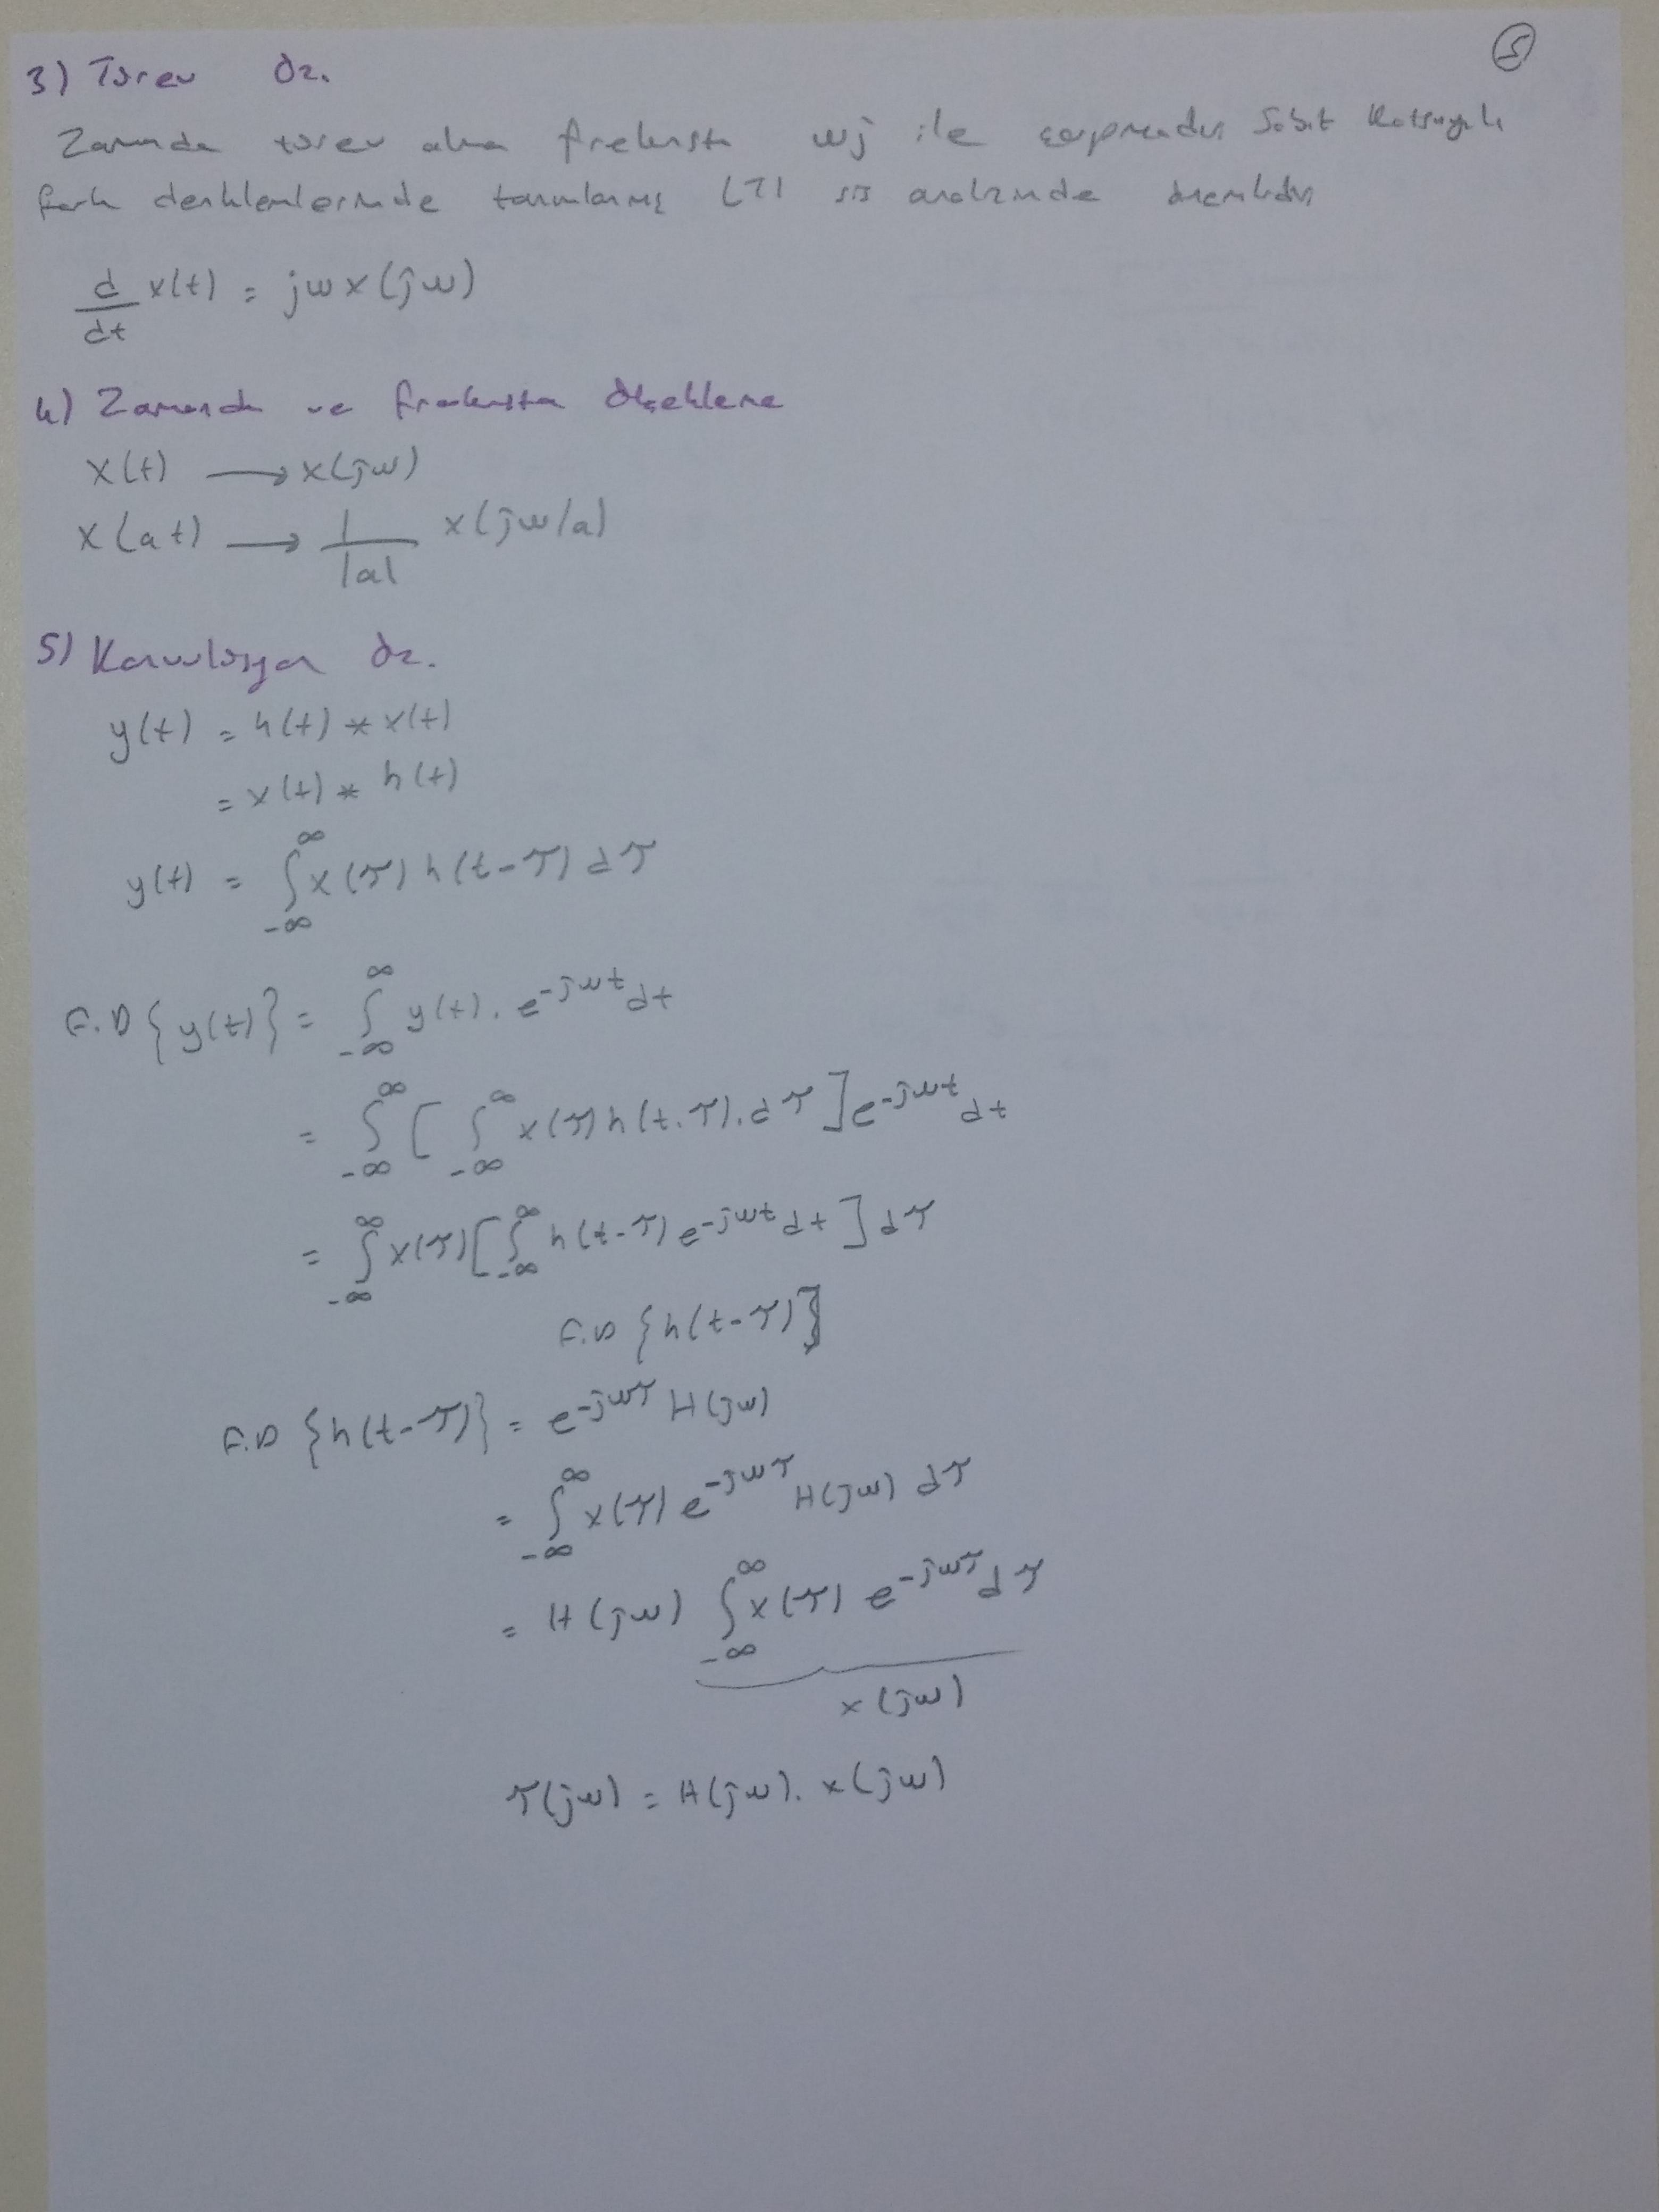 5
3) Türev Öz.
Zamanda türev alma frekansta wj ile çarpmaktır Sabit Katsayılı
fark denklemlerinde tanımlanmış LTI sis analizinde önemlidir
d/dt x(t) = jωx(jω)
4) Zamanda ve frekansta Ölçekleme
x(t) → x(jω)
x(at) → 1/|a| x(jω/a)
5) Konvolüsyon Öz.
y(t) = h(t) * x(t)
= x(t) * h(t)
y(t) = ∫_{-∞}^{∞} x(τ) h(t-τ) dτ
F.D {y(t)} = ∫_{-∞}^{∞} y(t). e^{-jωt} dt
= ∫_{-∞}^{∞} [ ∫_{-∞}^{∞} x(τ) h(t.τ).dτ ] e^{-jωt} dt
= ∫_{-∞}^{∞} x(τ) [ ∫_{-∞}^{∞} h(t-τ) e^{-jωt} dt ] dτ
F.D {h(t-τ)}
F.D {h(t-τ)} = e^{-jωτ} H(jω)
= ∫_{-∞}^{∞} x(τ) e^{-jωτ} H(jω) dτ
= H(jω) ∫_{-∞}^{∞} x(τ) e^{-jωτ} dτ
x(jω)
Υ(jω) = H(jω). x(jω)